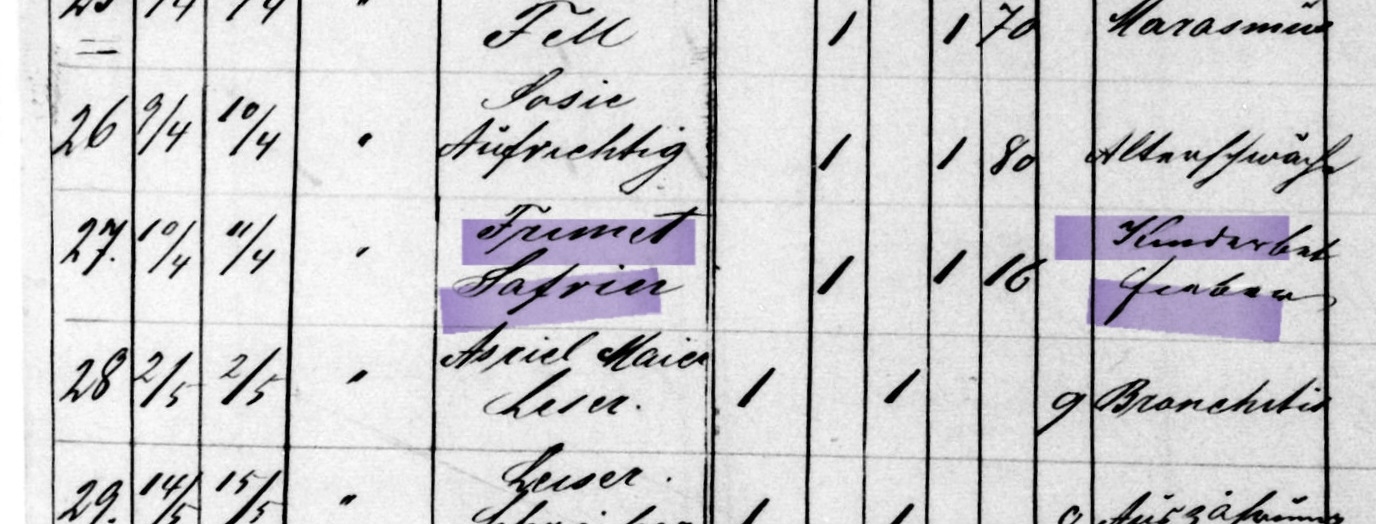 Fell 1 1 70 Marasmus
26 9/4 10/4 " Sosie
Aufrichtig 1 1 80 Altersschwäche
27. 10/4 11/4 " Frimet
Safrin 1 1 16 Kinderbet
fieber
28 2/5 2/5 " Asriel Maier
Leser. 1 1 9 Bronchitis
29. 14/5 15/5 " Leiser.